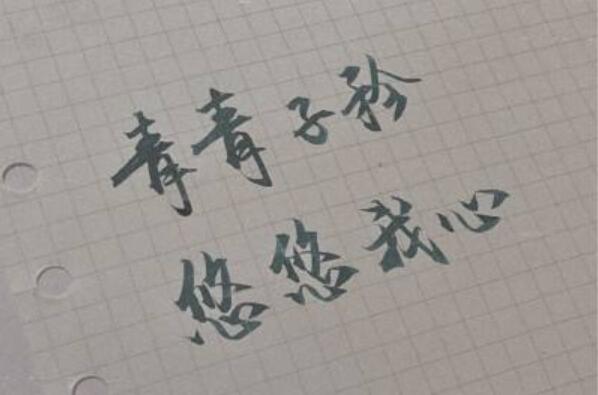 青青子矜
悠悠我心